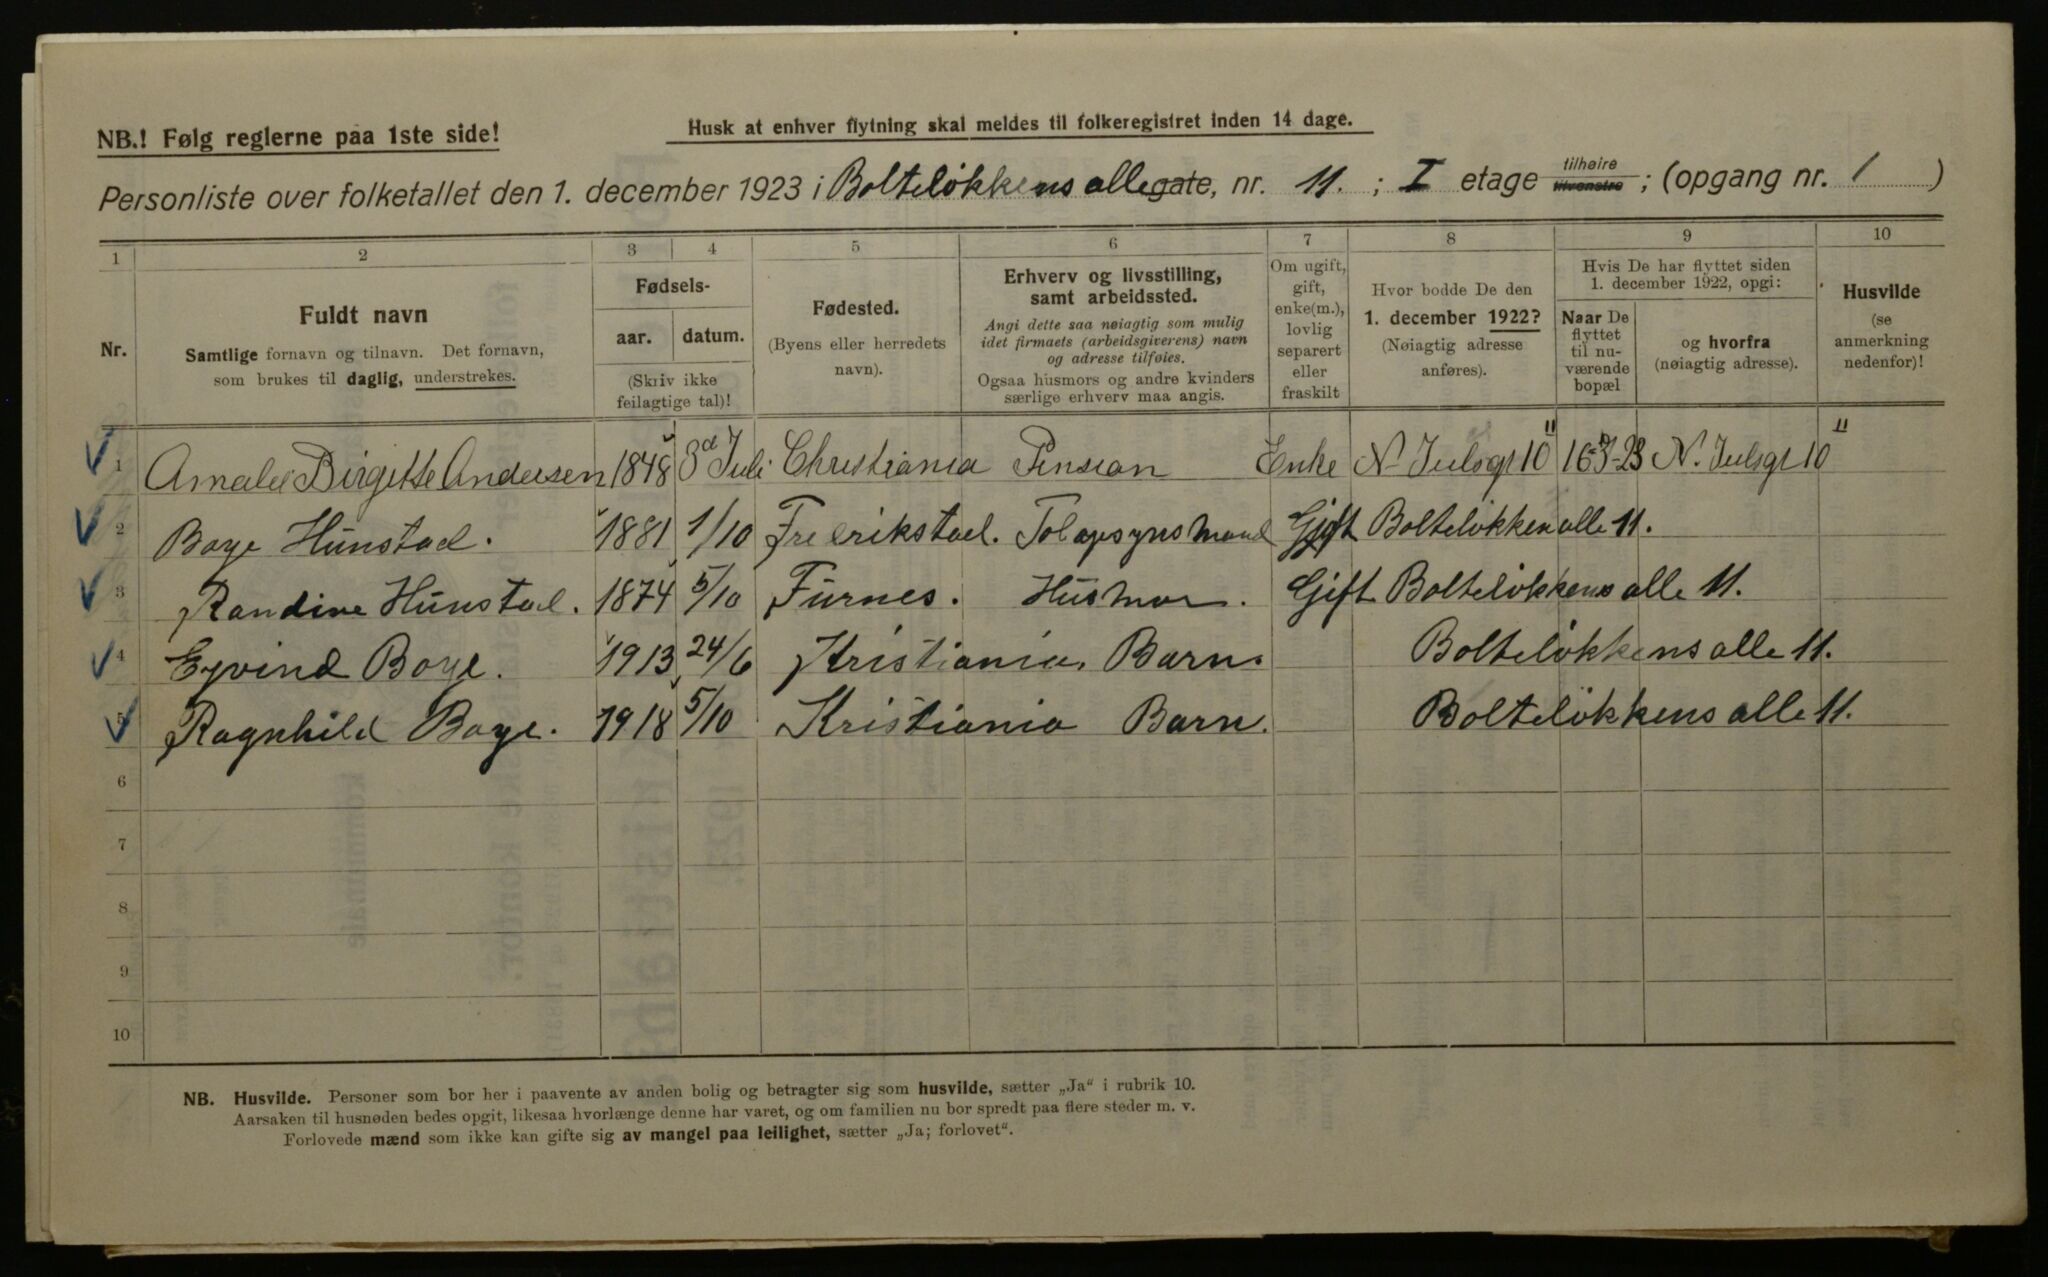 NB.! Følg reglerne paa 1ste side!
Husk at enhver flytning skal meldes til folkeregistret inden 14 dage.
Personliste over folketallet den 1. december 1923 i Bolteløkkens allegate, nr. 11. ; I etage tilhøire tilvenstre ; (opgang nr. 1 )
1 2 3 4 5 6 7 8 9 10
Nr.
Fuldt navn
Samtlige fornavn og tilnavn. Det fornavn,
som brukes til daglig, understrekes.
Fødsels-
aar. datum.
(Skriv ikke
feilagtige tal)!
Fødested.
(Byens eller herredets
navn).
Erhverv og livsstilling,
samt arbeidssted.
Angi dette saa nøiagtig som mulig
idet firmaets (arbeidsgiverens) navn
og adresse tilføies.
Ogsaa husmors og andre kvinders
særlige erhverv maa angis.
Om ugift,
gift,
enke(m.),
lovlig
separert
eller
fraskilt
Hvor bodde De den
1. december 1922?
(Nøiagtig adresse
anføres).
Hvis De har flyttet siden
1. december 1922, opgi:
Naar De
flyttet
til nu-
værende
bopæl
og hvorfra
(nøiagtig adresse).
Husvilde
(se
anmerkning
nedenfor)!
1 Amalie Birgitte Andersen 1848 3d Juli Christiania Pension Enke N. Juelsgt 10 II 16-3-23 N. Juelsgt 10 II
2 Boye Hunstad. 1881 1/10 Fredrikstad. Tolopsynsmand Gift Bolteløkken alle 11.
3 Randine Hunstad. 1874 5/10 Furnes. Husmor. Gift Bolteløkkens alle 11.
4 Eyvind Boye. 1913 24/6 Kristiania. Barn. Bolteløkkens alle 11.
5 Ragnhild Boye. 1918 5/10 Kristiania Barn. Bolteløkkens alle 11.
6
7
8
9
10
NB. Husvilde. Personer som bor her i paavente av anden bolig og betragter sig som husvilde, sætter „Ja“ i rubrik 10.
Aarsaken til husnøden bedes opgit, likesaa hvorlænge denne har varet, og om familien nu bor spredt paa flere steder m. v.
Forlovede mænd som ikke kan gifte sig av mangel paa leilighet, sætter „Ja; forlovet“.